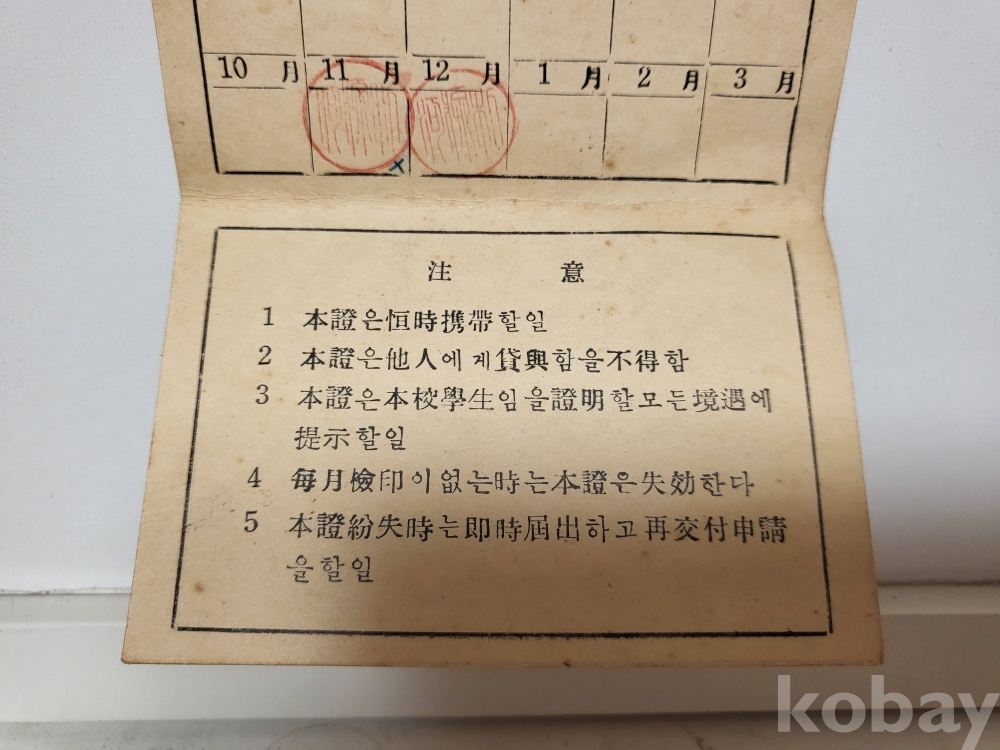 10 月 11 月 12 月 1 月 2 月 3 月
注 意
1 本證은恒時携帶할일
2 本證은他人에게貸與함을不得함
3 本證은本校學生임을證明할모든境遇에
提示할일
4 每月檢印이없는時는本證은失効한다
5 本證紛失時는即時屆出하고再交付申請
을할일
kobay